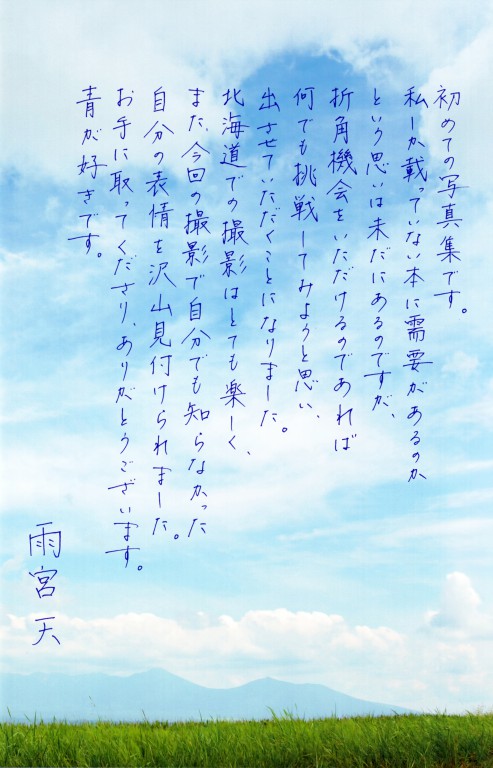 初めての写真集です。
私しか載っていない本に需要があるのか
という思いは未だにあるのですが、
折角機会をいただけるのであれば
何でも挑戦してみようと思い、
出させていただくことになりました。
北海道での撮影はとても楽しく、
また、今回の撮影で自分でも知らなかった
自分の表情を沢山見付けられました。
お手に取ってくださり、ありがとうございます。
青が好きです。
雨宮天